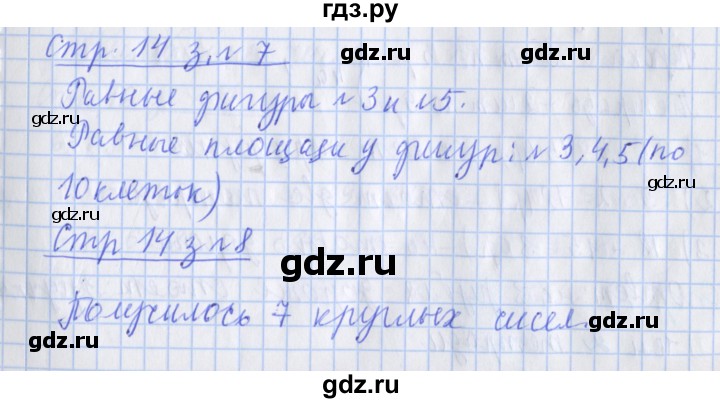 гдз.ру
Стр. 14 з. № 7
gdz.ru gdz.ru
Равные фигуры № 3 и № 5.
gdz.ru
Равные площади у фигур: № 3, 4, 5 (по
gdz.ru
10 клеток)
gdz.ru
Стр 14 з № 8
gdz.ru gdz.ru
Получилось 7 круглых чисел.
gdz.ru gdz.ru
gdz.ru